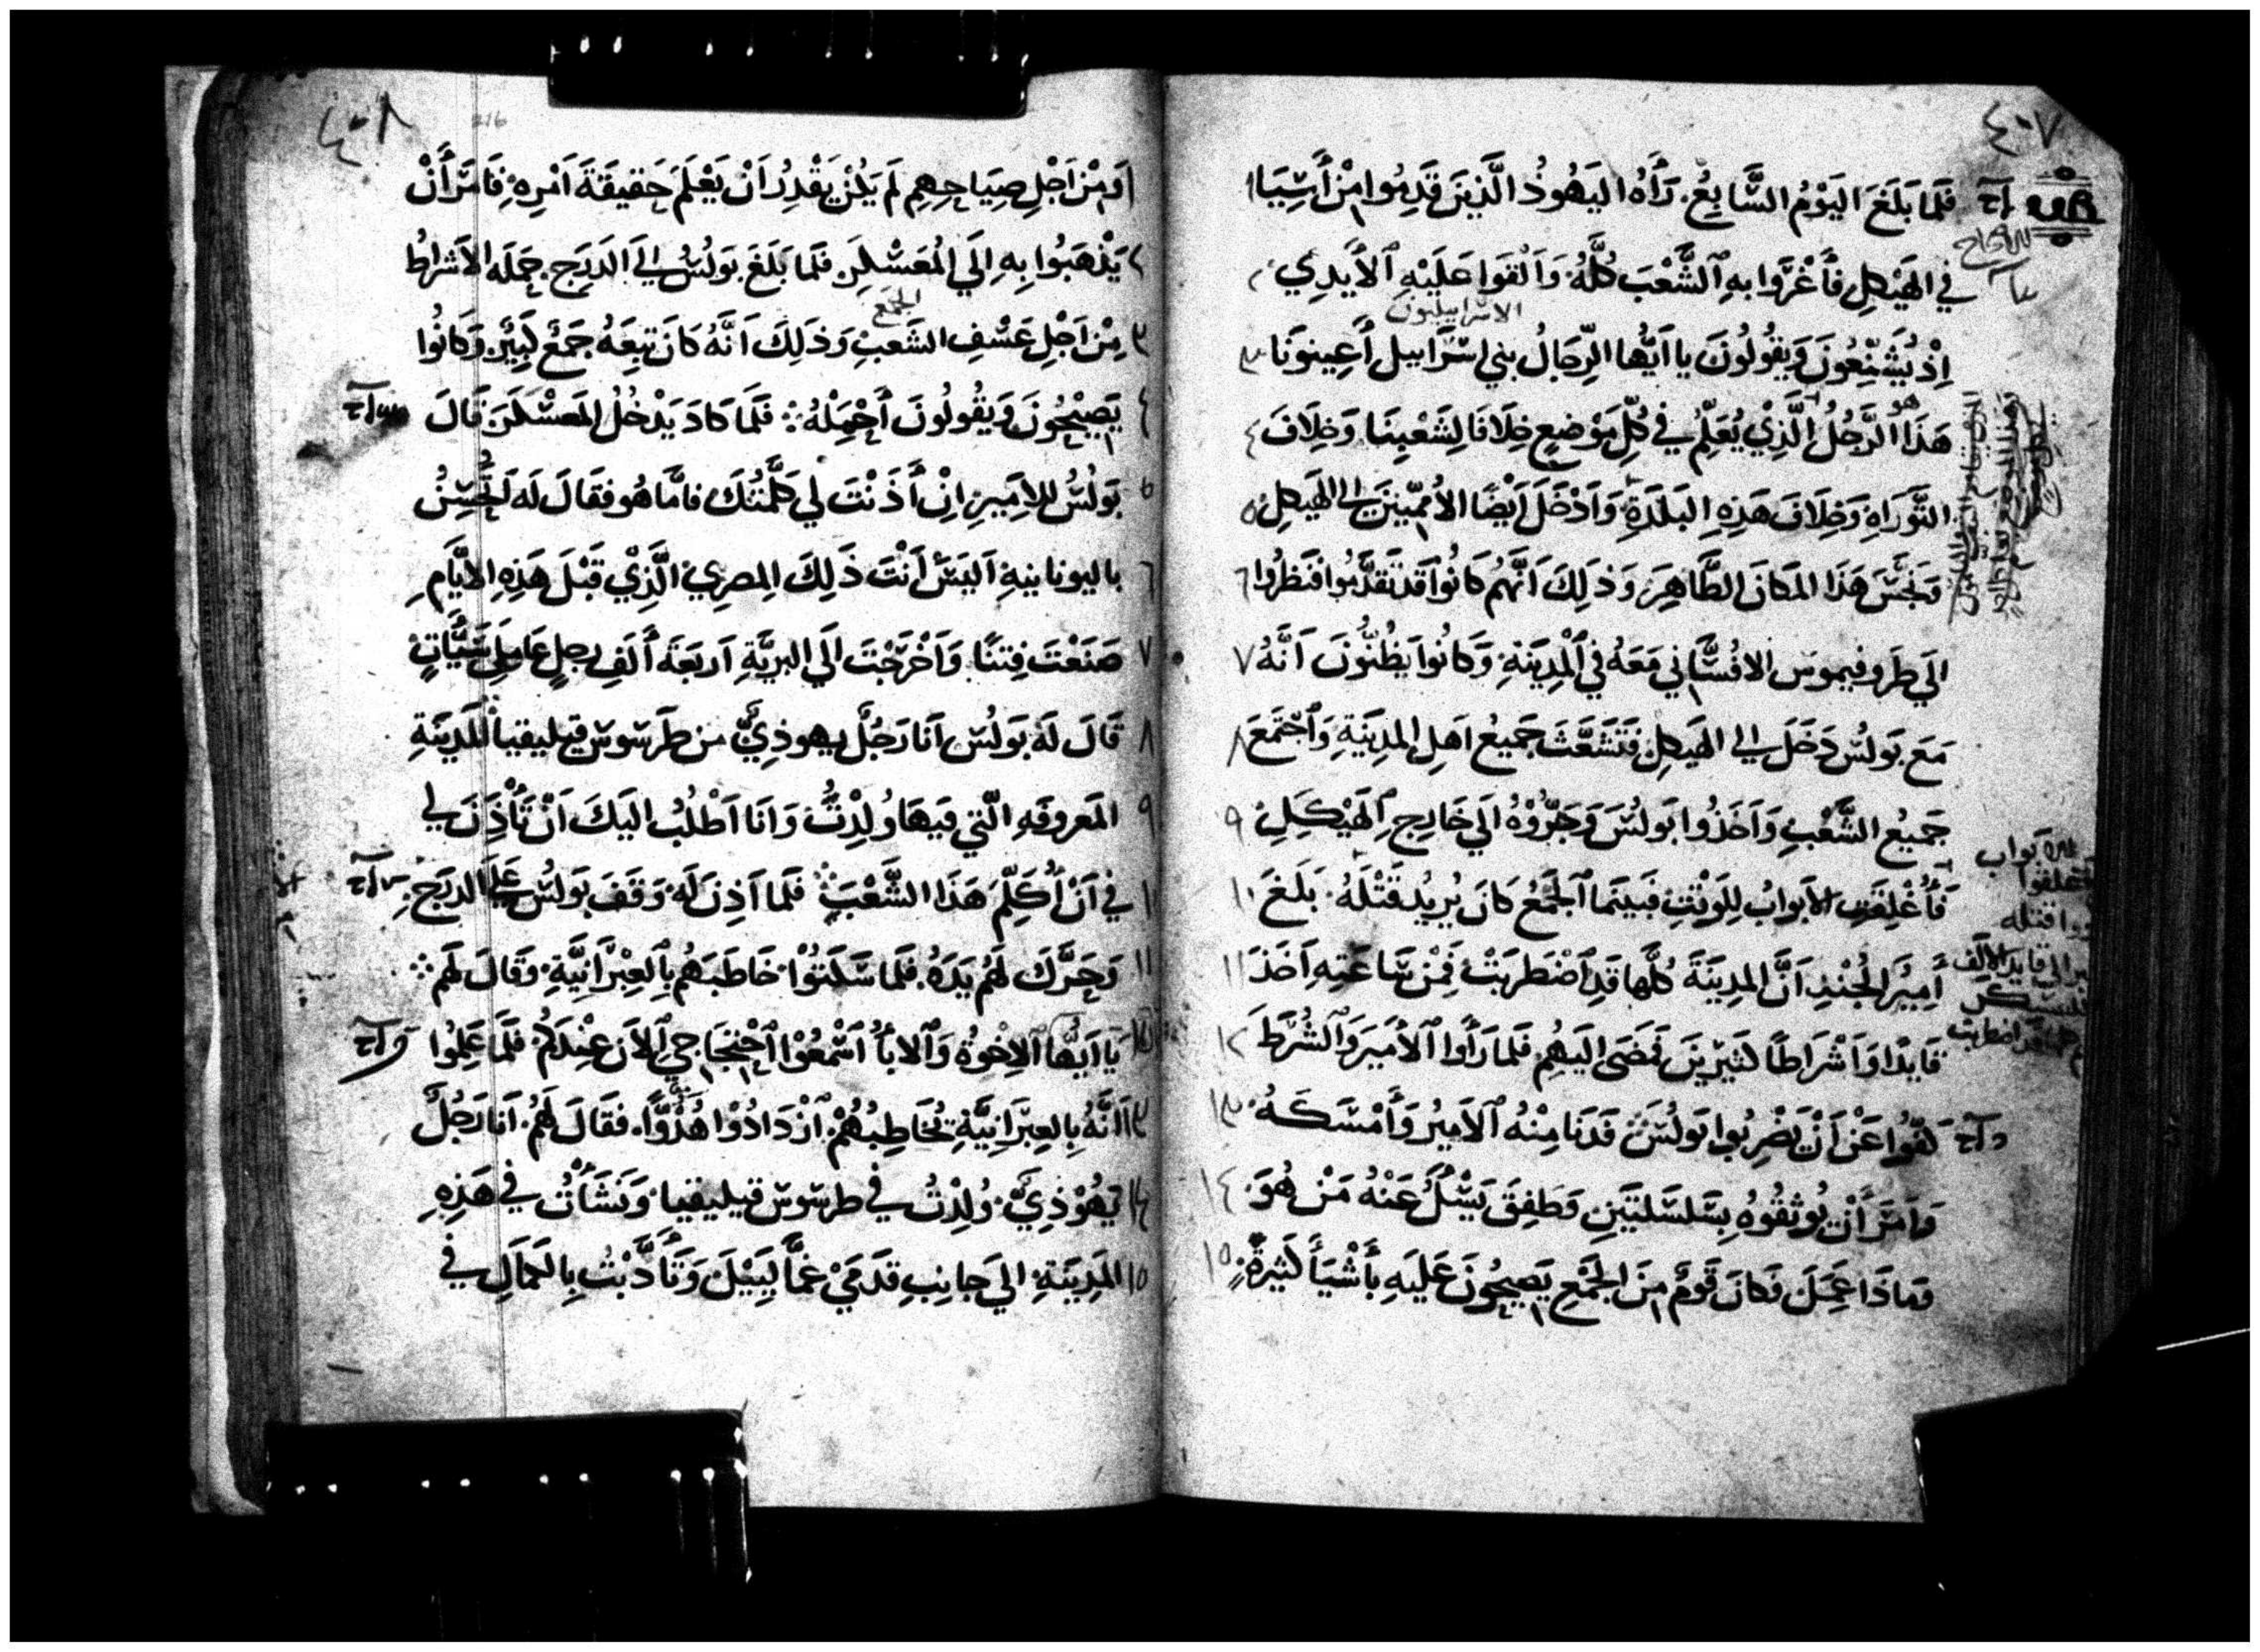 ٤٠٧
فَلَمَا بَلَغَ اليَوْمُ السَّابِعُ. رَأَهُ اليَهُوذُ الَّذِينَ قَدِمُوا مِنْ أَسِيَا ١
في الهَيْكلِ فأَغْرَوا بهِ ٱلشَّعْبَ كُلَّهُ وَاَلْقَوا عَلَيْهِ ٱلأَيدِي ٢
الاسراييليون
اِذ يُشَنِّعُونَ وَيَقُولُونَ يا اَيُّها الرِّجَالُ بني اسْرَاييل أَعِينونَا ٣
هو
هَذَا الرَّجُلُ الَّذِيْ يُعَلِّمُ في كُلِّ مَوْضِعٍ خِلَافًا لِشَعْبِنَا وَخِلَافَ ٤
التَّوَرَاةِ وَخِلَافَ هَذِهِ البَلدَةِ وَاَدْخَلَ اَيْضًا الأُمَمِيّينَ الى الهَيكلِ ٥
وَنَجَّسَ هَذَا المَكَانَ الطَّاهِرَ وَذلِكَ اَنَّهُم كَانُوا قَد تَقَدَّمُوا فنَظَرُوا ٦
الَي طَرَوفيموس الافسُسَّاني مَعَهُ في ٱلْمَدِينَةِ وَكَانُوا يَظُنُّونَ اَنَّهُ ٧
مَعَ بَولُسَ دَخَلَ الى الهَيكلِ فَتَشَعَّثَ جَميعُ اَهلِ المَدِينَةِ وَٱجْتَمَعَ ٨
جَمِيعُ الشَّعْبِ وَاَخَذُوا بَولُسَ وَجَرُّوْهُ الَي خَارِجِ ٱلهَيْكَلِ ٩
فَأُغْلِقَتِ الأَبوابُ لِلوَقْتِ فبَينَمَا ٱلجَمْعُ كانَ يُرِيُد قَتْلَهُ. بَلَغَ ١٠
أَمِيْرَ الجُنْدِ اَنَّ المدِينَةَ كُلَّها قَدِ ٱضْطَرَبَتْ فَمِنْ سَاعَتِهِ اَخَذَ ١١
قَايدًا وَاَشْرَاطًا كثيَرِينَ فمَضَى الَيهِم فلَمَا رَأَوا ٱلأَمِيَر وَٱلشُّرَطَ ١٢
كَفّوُا عَنْ اَنْ يَضْرِبُوا بَولُسَ فَدَنَا مِنْهُ ٱلأَمِيرُ وَأَمْسَكَهُ ١٣
وَاَمَرَ أَنْ يُوثِقُوهُ بِسَلسَلَتَينِ وَطَفِقَ يَسْئَلُ عَنْهُ مَنْ هُوَ ١٤
وَمَاذَا عَمِلَ فكَانَ قَومٌ مِنَ الجَمْعِ يَصِيحُونَ عَليَهِ بأَشْيَأَ كَثيرةٍ ١٥
٤٠٨
216
١ وَمِنْ اَجْلِ صِيَاحِهِم لَم يَكُنْ يَقْدِرُ اَنْ يَعْلَمَ حَقيقَةَ اَمْرِهِ فَاَمَرَ أَنْ
٢ يَذْهَبُوا بِهِ الَي المُعَسْكَرِ فلَمَا بَلَغَ بَولُسُ الى الَدَرَجِ حَمَلَه الأَشرَاطُ
الجمع
٣ مِنْ اَجْلِ عَسْفِ الشَعبِ وَذلِكَ اَنَّهُ كَانَ تبِعَهُ جَمعٌ كَبِيرٌ وَكانُوا
٤ يَصِيْحُونَ وَيَقُولُونَ اَحْمِلْهُ ؞ فَلَمَا كَادَ يَدْخُلُ المَعسْكَرَ قَالَ
٥ بَولُسُ للاَمِيرِ اِنْ أَذَنْتَ لي كلَّمتُكَ فامَّا هُو فقَالَ لَه تُحْسِنُ
٦ باليونانيةِ اَليَسَ أَنْتَ ذَلِكَ المِصرِي الَّذِيْ قَبْلَ هَذِهِ الأَيَّامِ
٧ صَنَعْتَ فِتَنًا وَاَخْرَجْتَ الَي البريَّةِ اَربَعَةَ أَلَفِ رجلٍ عَامِلِى سَيَّأتٍ
٨ قَالَ لَهُ بَولُسُ اَنَا رَجُلٌ يهوذِيٌّ من طَرَسُوسَ قيليقيا المَدِينَةِ
٩ المَعروفَهِ الّتي فيَهَا وُلِدْتُ وَانَا اَطْلُبُ الَيكَ اَنْ تَأْذَنَ لي
١٠ في اَنْ أُكَلِّمَ هَذَا الشَّعْبَ ؞ فَلَما اَذِنَ لَهُ وَقَفَ بَولُسُ عَلَى الدرَجِ
١١ وَحَرَّكَ لَهُم يَدَهُ فلَمَا سَكَتُوْا خَاطَبَهُم بِٱلعِبْرَانِيَّةِ وَقَالَ لَهُم ؞
١٢ يَا اَيُّهَا ٱلاِخْوَةُ وَٱلأبَأُ اَسْمَعُوْا ٱحْتِجَاجِي ٱلآنَ عِنْدَكُم فَلَمَا عَلِمُوا
١٣ اَنَّهُ بِالعِبْرَانِيَّةِ يُخَاطِبُهُمْ ٱزْدَادُوْا هُدُوًّا. فقَالَ لَهُم. اَنَا رَجُلٌ
١٤ يَهُوْذِيٌّ. وُلِدْتُ في طرسُوسَ قيليقيا وَنَشَأْتُ في هَذِهِ
١٥ المَدِينَةِ الَي جَانِبِ قدَمَيْ غمَّالِيِيْلَ وَتَأَدَّبْتُ بِالكمَالِ في